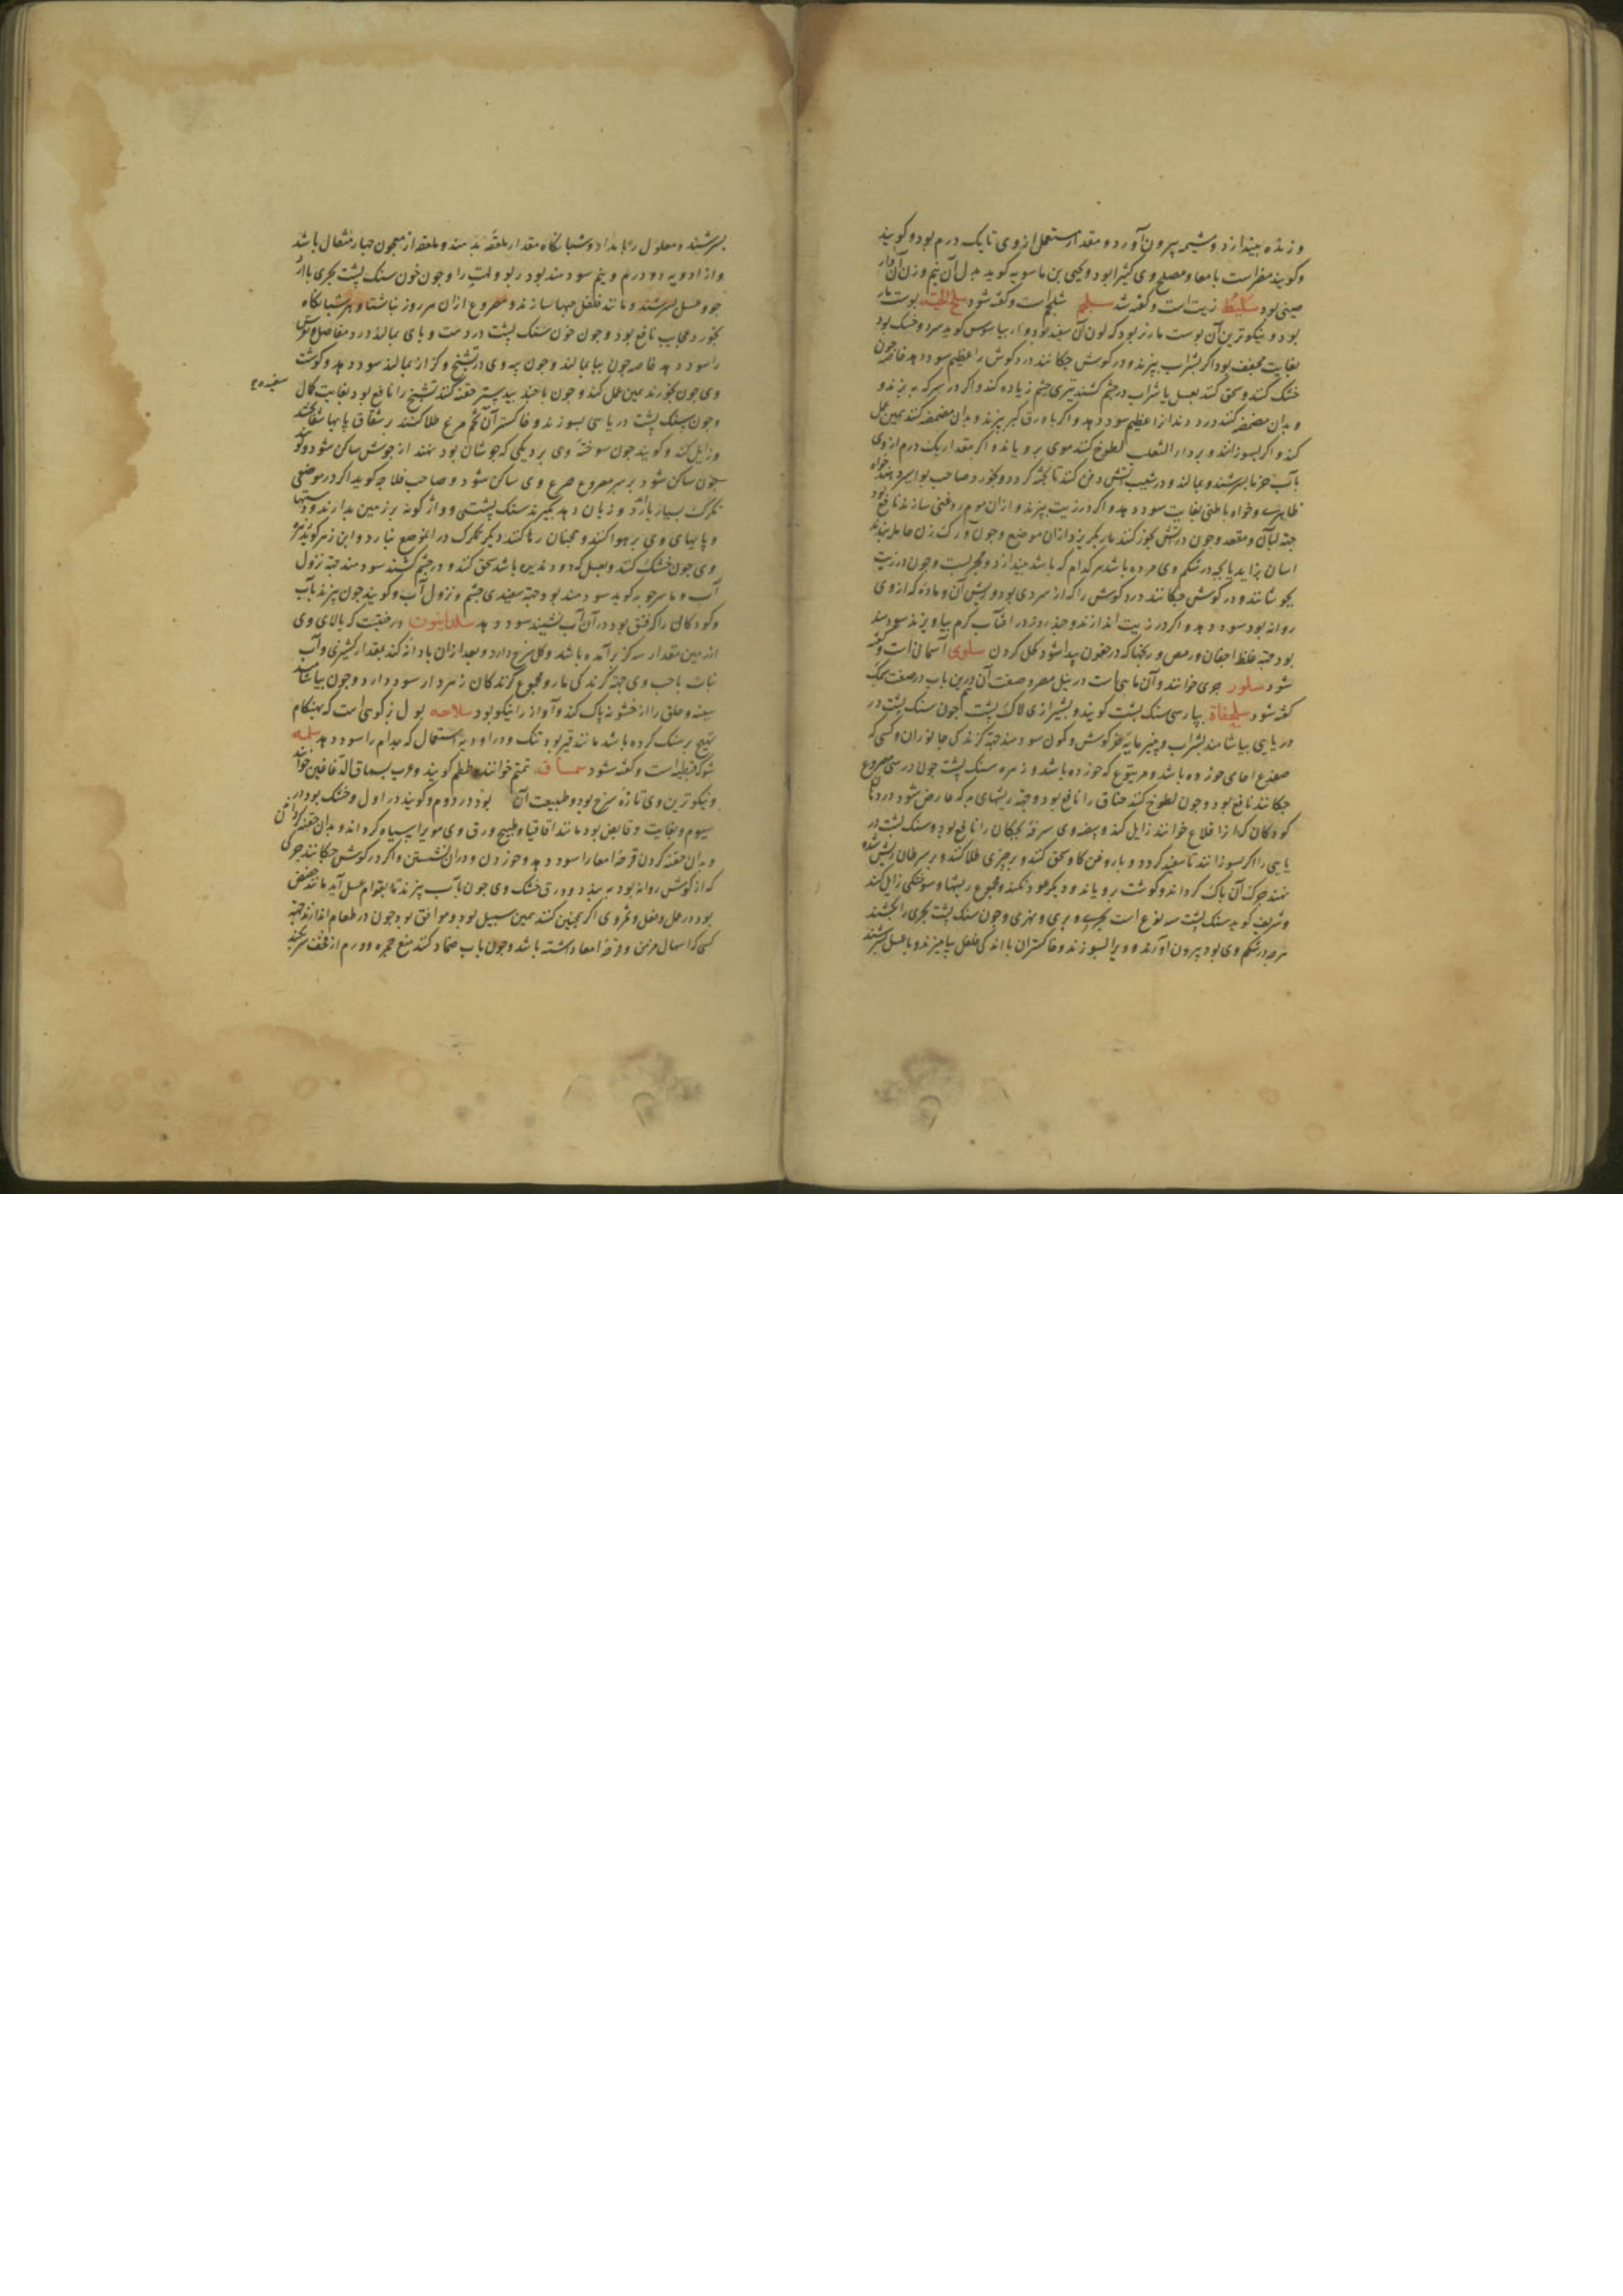 و زنده بیندازد و مشیمه بیرون آورد و مقدار مستعمل از وی تا یک درم بود و کویند
و کویند مضر است بامعا و مصلح وی کثیرا بود و یحیی بن ماسویه کوید بدل آن نیم وزن آن دار
صینی بود سلیط زیت است و کفته شد سلجم شلجم است و کفته شود سلخ الحیه پوست مار
بود و نیکوترین آن پوست مار نر بود که لون آن سفید بود و اریباسیوس کوید سرد و خشک بود
بغایت مجفف بود اکر بشراب بپزند و در کوش چکانند درد کوش را عظیم سود دهد خاصه چون
خشک کنند و سحق کنند بعسل یا شراب در چشم کشند تیزی چشم زیاده کند و اکر در سرکه بپزند و
و بدان مضمضه کنند درد دندان را عظیم سود دهد و اکر با ورق کبر بپزند و بدان مضمضه کنند همین عمل
کند و اکر بسوزانند و بر داء الثعلب لطوخ کنند موی برویاند و اکر مقدار یک درم از وی
بآب خرما بسرشند و بمالند و در شیب آتش دفن کنند تا پخته کردد و بخورد صاحب بواسیر دهند خواه
ظاهری و خواه باطنی بغایت سود دهد و اکر در زیت بپزند و از آن موم روغنی سازند نافع بود
جهة لبان و مقعد و چون در آتش بخور کنند مار بکریزد از آن موضع و چون آن بر ران زن حامله بندند
اسان بزاید یا بچه در شکم وی مرده باشد هر کدام که باشد بیندازد و مجربست و چون در زیت
بجوشانند و در کوش چکانند درد کوش را که از سردی بود و ریش آن و ماده که از وی
روانه بود سود دهد و اکر در زیت اندازند و چند روز در افتاب کرم بیاویزند سودمند
بود جهة غلظ اجفان و رمص و رنجها که در جفون پیدا شود کحل کردن سلوی آسمانی است و کفته
شود سلور جری خوانند و آن ماهی است در نیل مصر و صفت آن هم درین باب در صفت سمک
کفته شود سلحفاة بپارسی سنک پشت کویند و بشیرازی لاک پشت چون سنک پشت در
دریایی بیاشامند بشراب و پنیر مایه خرکوش و کمون سودمند جهة کزندکی جانوران و کسی که
ضفدع اجامی خورده باشد و مر یتوع که خورده باشد و زهره سنک پشت چون در بینی مصروع
چکانند نافع بود و چون لطوخ کنند خناق را نافع بود و جهة ریشهای بد که عارض شود در دهان
کودکان که آنرا قلاع خوانند زایل کند و بیضه وی سرفه بچکان را نافع بود و سنک پشت در
یایی را اکر بسوزانند تا سفید کردد و با روغن کاو سحق کنند و بر چیزی طلا کنند و بر سرطان ریش شده
نهند چرک آن پاک کرداند و کوشت برویاند و دیکر عود نکند و مجموع ریشها و سوختکی زایل کند
و شریف کوید سنک پشت سه نوع است بحری و بری و نهری و چون سنک پشت بحری را بکشند
هرچه در شکم وی بود بیرون آورند و ویرا بسوزند و خاکستر آن با اندکی فلفل بیامیزند و با عسل بسرشند
بسرشند و معلول را بامداد و شبانکاه مقدار ملعقه بدهند و ملعقه از معجون چهار مثقال باشد
و از ادویه دو درم و نیم سودمند بود ربو و لهب را و چون خون سنک پشت بحری با آرد
جو و عسل بسرشند و مانند فلفل حبها سازند و مصروع از آن هر روز ناشتا و هر شبانکاه
بخورد عجایب نافع بود و چون خون سنک پشت در دست و پای بمالند درد مفاصل و نقرس
را سود دهد خاصه چون بیا بمالند و چون پیه وی در تشنج و کزاز بمالند سود دهد و کوشت
وی چون بخورند همین عمل کند و چون با جند بیدستر حقنه کنند تشنج را نافع بود بغایت کمال
سفیده ج
و چون سنک پشت دریایی بسوزند و خاکستر آن با تخم مرغ طلا کنند بر شقاق پایها شفا بخشد
و زایل کند و کویند چون سوخته وی بر دیکی که جوشان بود نهند از جوش ساکن شود و کویند
چون ساکن شود بر سر مصروع صرع وی ساکن شود و صاحب فلاحه کوید اکر در موضعی
تکرک بسیار بارد و زیان دهد بکیرند سنک پشتی و واژکونه بر زمین بدارند و دستها
و پایهای وی بر هوا کنند و همچنان رها کنند دیکر تکرک در آن موضع نبارد و ابن زهر کوید زهره
وی چون خشک کنند و بعسل که دود ندیده باشد سحق کنند و در چشم کشند سودمند جهة نزول
آب و ماسرجویه کوید سودمند بود جهة سفیدی چشم و نزول آب و کویند چون بپزند بآب
و کودکانی را که فتق بود در آن آب نشینند سود دهد سلداینون درختیست که بالای وی
از زمین مقدار سه کز برآمده باشد و کل سرخ دارد و بعد از آن بار دانه کند بقدار کشنیزی و آب
نبات با حب وی جهة کزندکی مار و مجموع کزندکان زهردار سود دارد و چون بیاشامند
سینه و حلق را از خشونه پاک کند و آواز را نیکو بود سلاحه بول بز کوهی است که بهنکام
تیج بر سنک کرده باشد مانند قیر بود تنک و در ادویه استعمال که جذام را سود دهد سلبه
شوکه قبطیه است و کفته شود سماق تمتم خوانند و طمطم کویند و عرب بسماق الدباغین خوانند
و نیکوترین وی تازه سرخ بود و طبیعت آن بود در دوم و کویند در اول و خشک بود در
سیوم و بغایت و قابض بود مانند اقاقیا و طبیخ ورق وی مویرا سیاه کرداند و بدان حقنه کردن
و بدان حقنه کردن قرحه امعا را سود دهد و خوردن و در آن نشستن و اکر در کوش چکانند چرکی
که از کوش روانه بود ببندد و ورق خشک وی چون بآب بپزند تا بقوام عسل آید مانند حضض
بود در عمل و فعل و ثمر وی اکر همچنین کنند همین سبیل بود و موافق بود چون در طعام اندازند جهة
کسی که اسهال مزمن و قرحه امعا داشته باشد و چون بآب ضماد کنند منع حمره و ورم از قحف سر بکند